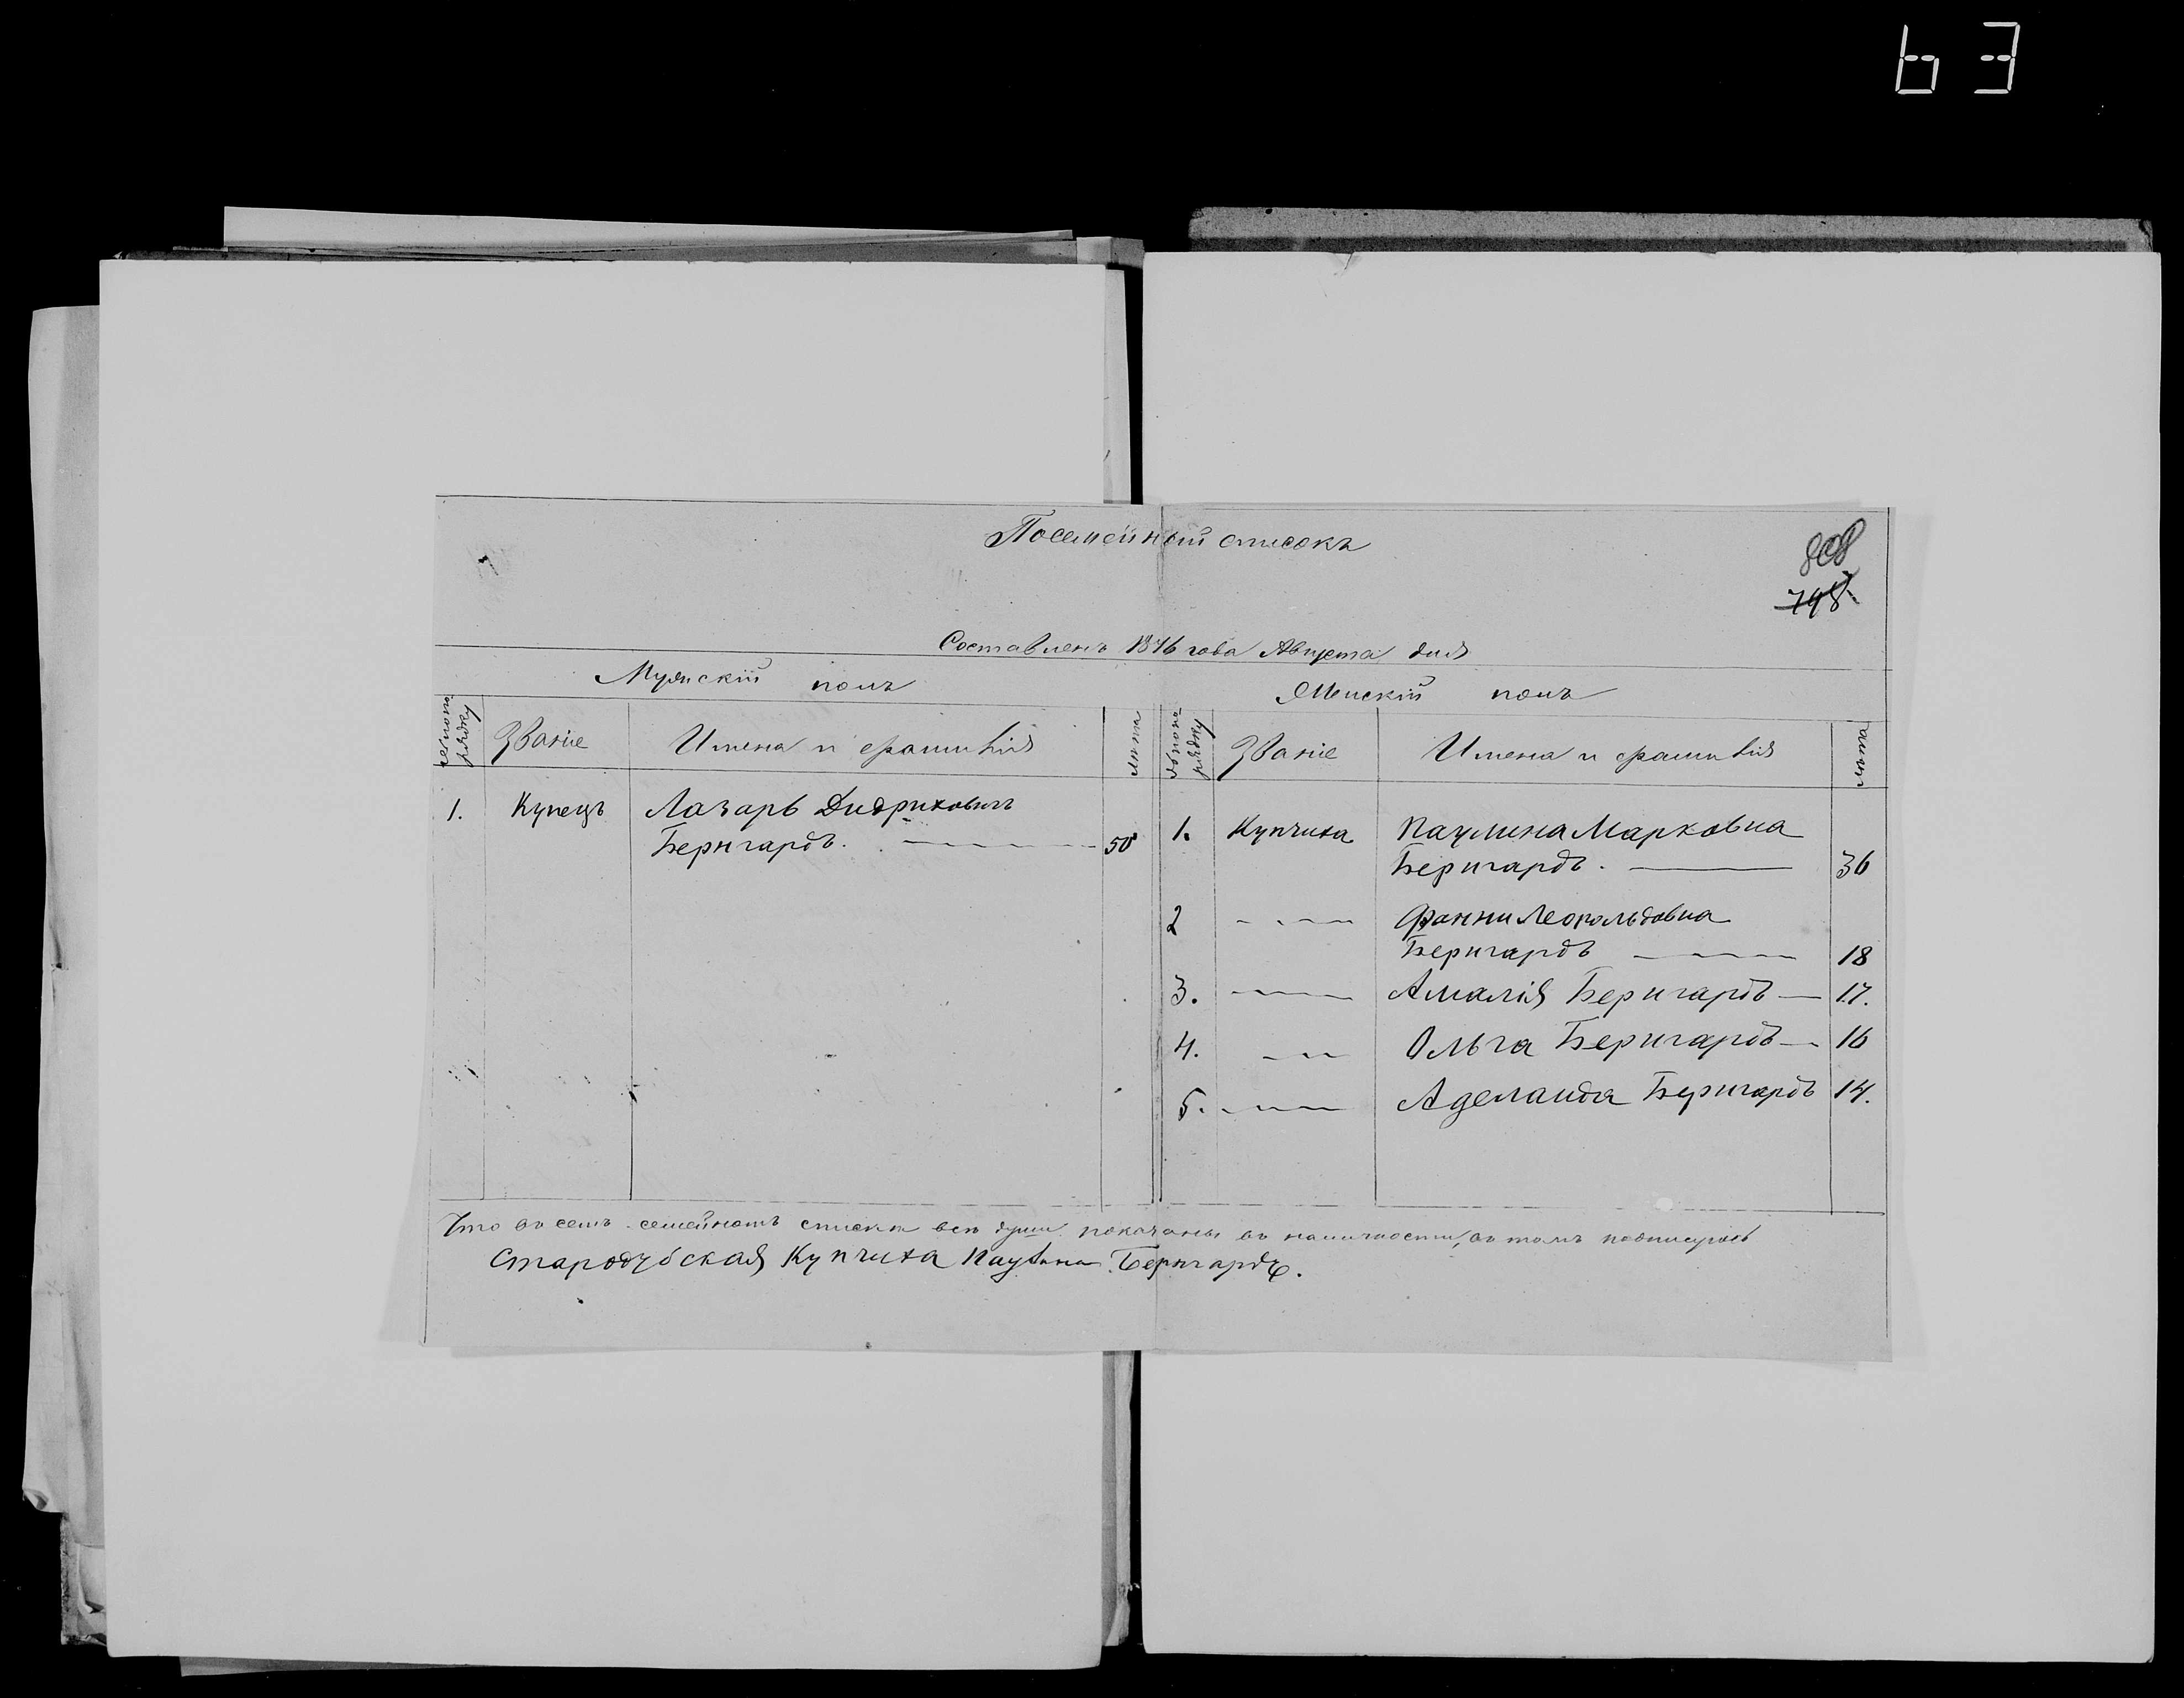 63
Посемейный списокъ
808
798
Составленъ 1876 года Августа дня
Мужскій полъ
Женскій полъ
порядку
Званіе
Имена и фамилія
лѣта
порядку
Званіе
Имена и фамилія
лѣта
1. Купецъ Лазарь Дидриховичъ
Бернгардъ. 50
1. Купчиха Паулина Марковна
Бернгардъ. 36
2 Фанни Леопольдовна
Бернгардъ 18
3. Амалія Бернгардъ 17.
4. Ольга Бернгардъ 16
5. Аделаида Бернгардъ 14.
Что въ семъ семейномъ списки всѣ души показаны въ наличности, въ томъ подписуюсь
Стародубская Купчиха Паулина Бернгардъ.